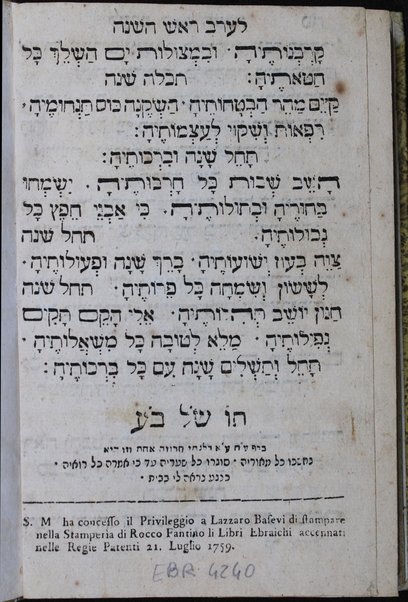 לערב ראש השנה
קָרְבְּנוֹתֶיהָ׃ וּבִמְצוּלוֹת יָם הַשְׁלֵךְ כָּל
חַטֹּאתֶיהָ׃ תכלה שנה
קַיֵּם מַהֵר הַבְטָחוֹתֶיהָ׃ הַשְׁקֵנָה כּוֹס תַּנְחוּמֶיהָ׃
רִפְאוּת וְשִׁקּוּי לְעַצְמוֹתֶיהָ׃
תָּחֵל שָׁנָה וּבִרְכוֹתֶיהָ׃
הָשֵׁב שְׁבוּת כָּל חָרְבוֹתֶיהָ׃ יִשְׂמְחוּ
בַּחוּרֶיהָ וּבְתוּלוֹתֶיהָ׃ כִּי אַבְנֵי חֵפֶץ כָּל
גְּבוּלוֹתֶיהָ׃ תחל שנה
צַוֵּה בְּעֹז יְשׁוּעוֹתֶיהָ׃ בָּרֵךְ שָׁנָה וּפְעוּלוֹתֶיהָ׃
לְשָׂשׂוֹן וְשִׂמְחָה כָּל פֵּרוֹתֶיהָ׃ תחל שנה
חַנּוּן יוֹשֵׁב תְּהִלּוֹתֶיהָ׃ אֵלִי הָקֵם תָּקִים
נְפִילוֹתֶיהָ׃ מַלֵּא לְטוֹבָה כָּל מִשְׁאֲלוֹתֶיהָ׃
תָּחֵל וְתַשְׁלִים שָׁנָה עִם כָּל בִּרְכוֹתֶיהָ׃
תו של בע
חרוזה אחת וזו היא
חשכו כל מאוריה׃ סוגרו כל שעריה עד כי אמרה כל רואיה׃
כנגע נראה לי בבית׃
S. M ha concesso il Privileggio a Lazzaro Basevi di stampare
nella Stamperia di Rocco Fantino li Libri Ebraichi accennati
nelle Regie Patenti 21. Luglio 1759.
EBR 4240